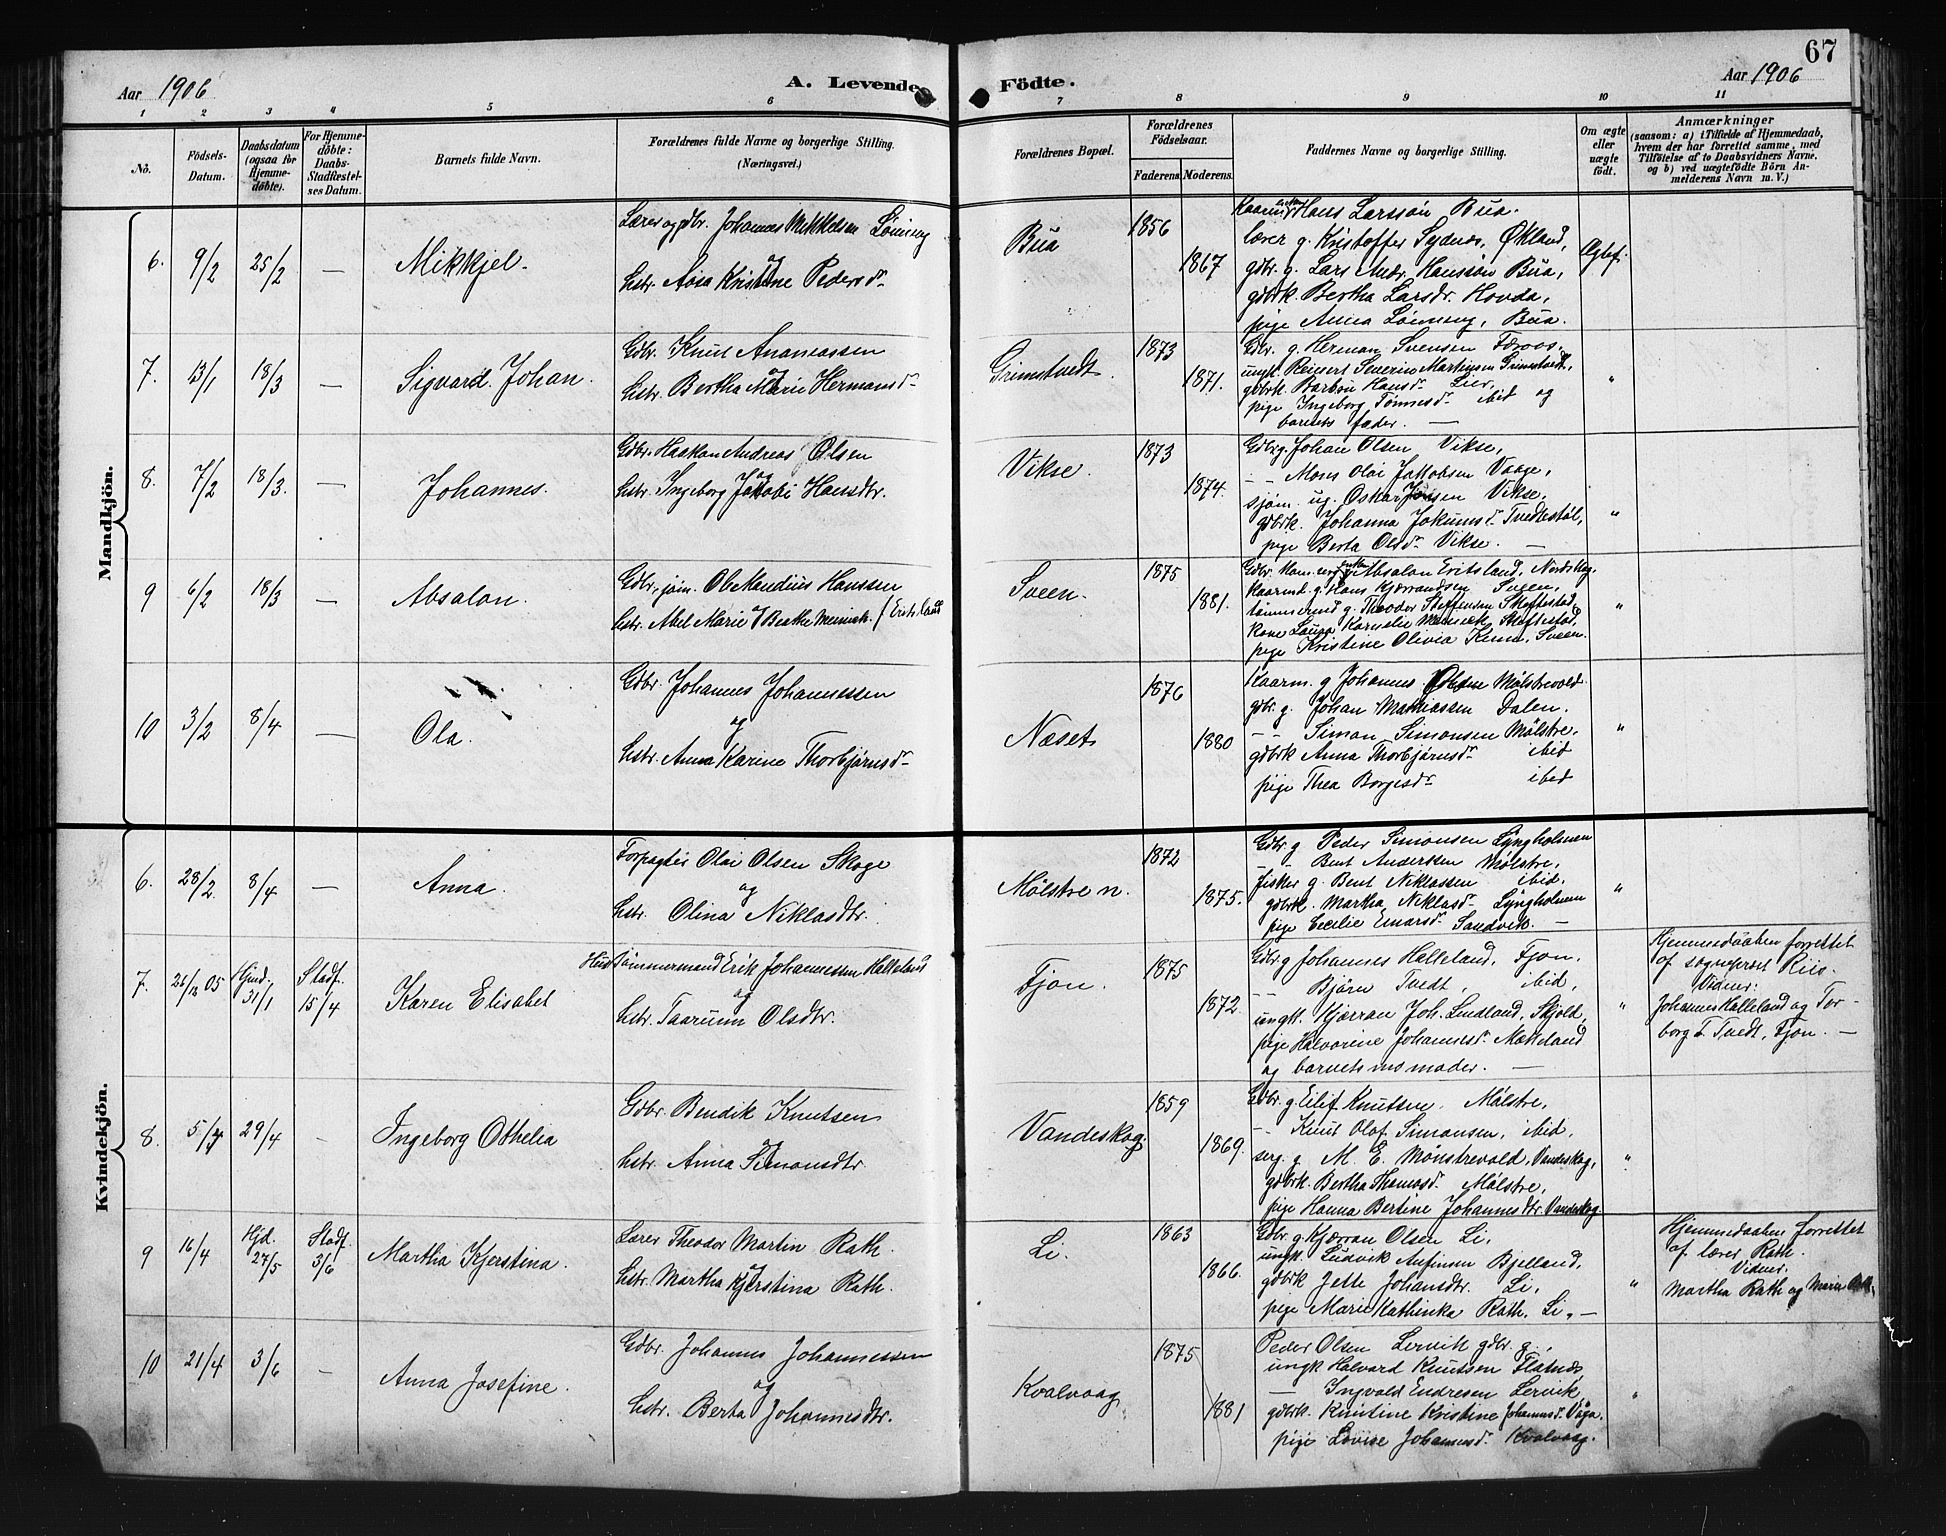 67
Aar 1906
A. Levende Födte.
Aar 1906
1 2 3 4 5 6 7 8 9 10 11
No.
Födsels-Datum.
Daabsdatum (ogsaa for Hjemme-döbte).
For Hjemme-döbte: Daabs-Stadfæstel-ses Datum.
Barnets fulde Navn.
Forældrenes fulde Navne og borgerlige Stilling.
(Næringsvei.)
Forældrenes Bopæl.
Forældrenes Födselsaar.
Faderens. Moderens.
Faddernes Navne og borgerlige Stilling.
Om ægte eller uægte födt.
Anmærkninger
(saasom: a) i Tilfælde af Hjemmedaab,
hvem der har forrettet samme, med
Tilföielse af to Daabsvidners Navne,
og b) ved uægtefödte Börn An-
melderens Navn m. V.)
Mandkjön.
6. 9/2 25/2 — Mikkjel.
Lærer og gdbr. Johannes Mikkelsen Lönning
og
hstr. Aasa Kristine Pedersdr
Bua
1856
1867
Hans Larsson Bua.
lærer g. Kristoffer Sydnes, Økland,
gdbr. g. Lars Andr. Hansson Bua,
gdbrk. Bertha Larsdr. Hovda,
pige Anna Lönning, Bua.
Egtef.
7. 13/1 18/3 — Sigvard Johan.
Gdbr. Knut Ananiassen
og
hstr. Bertha Marie Hermansdr
Grimstvedt.
1873
1871.
Gdbr. g. Herman Svensen
ungk. Reinert Severin Martinsen Grimstvedt,
gdbrk. Barbru Hansdr Lier,
pige Ingeborg Tönnesdr ibid og
barnets fader. —
"
8. 7/2 18/3. — Johannes.
Gdbr. Haakon Andreas Olsen
og
hstr. Ingeborg Jakobi Hansdtr.
Vikse.
1873
1874.
Gdbr g. Johan Olsen Vikse,
- - Mons Olai Jakobsen Vaage,
sjöm. ug. Oskar Jensen Vikse,
gdbrk. Johanna Jokumsdr Tvedtestöl,
pige Berta Olsdr Vikse. —
"
9 6/2 18/3 — Absalon.
Gdbr., jöm. Ole Mandius Hanssen
hstr. Abel Marie Beatke
Sveen.
1875
1881.
Absalon Eritsland, Nordskog
Kaarmd. g. Hans Kjærrandsen Sveen,
tömmermd g. Theodor Steffensen Skeftestad,
kone Laura Kornelie Skeftestad,
pige Kristine Olivia Sveen.
"
10 3/2 8/4 — Ola.
Gdbr. Johannes Johannessen
og
hstr. Anna Karine Thorbjörnsdr
Næset
1876
1880
Kaarm. g Johannes Mölstrevold
gdbr. g. Johan Mathiassen Dalen.
- - Simon Simonsen Mölstre,
gdbrk Anna Thorbjörnsdr ibid
pige Thea Borgesdr ibid
"
Kvindekjön.
6. 28/2. 8/4 — Anna.
Forpagter Olai Olsen Skoge
og
hstr. Olina Niklasdtr.
Mölstre n.
1872
1875.
Gdbr. g Peder Simonsen Lyngholmen
- - Bent Anderssen Mölstre,
fisker g. Bent Niklassen ibid.
gdbrk. Martha Niklasdr Lyngholmen
pige Cecilie Einarsdr Sandvik. —
"
7. 26/12 05 Hjmd. 31/1 Stadf. 15/4 Karen Elisabet
Hus tömmermand Erik Johannessen Halleland
og
hstr. Taarunn Olsdtr.
Fjon.
1875
1872
Gdbr g Johannes Halleland, Fjon,
- - Björn Tvedt, ibid,
ungk. Kjærran Joh. Lindland, Skjold,
pige Halvorine Johannesdr Mætteland
og barnets mormoder. —
"
Hjemmedaaben forrettet
af sogneprest Riis.
Vidner:
Johannes Halleland og Tor-
borg T. Tvedt, Fjon. —
8. 5/4 29/4 - Ingeborg Othelia
Gdbr. Bendik Knutsen
og
hstr. Anna Simonsdtr
Vandeskog.
1859
1869.
Gdbr. g. Eilif Knutsen. Mölstre,
- - Knut Olaf Simonsen, ibid,
serg. g M. E. Mönstrevold, Vandeskog,
gdbrk. Bertha Thomasdr. Mölstre,
pige Hanna Bertine Johannesdtr. Vandeskog
"
9 16/4 Hjd. 27/5 Stadf. 3/6 Martha Kjerstina.
Lærer Theodor Martin Rath.
og
hstr. Martha Kjerstina Rath.
Li.
1863
1866.
Gdbr. g. Kjærran Olsen Li.
ungk. Ludvik Anfinsen Bjelland,
gdbrk Jette Johansdtr. Li,
pige Marie Kathinka Rath. Li. —
"
Hjemmedaaben forrettet
af lærer Rath.
Vidner.
Martha Rath og Marie Rath,
10 21/4 3/6 - Anna Josefine.
Gdbr. Johannes Johannessen
og
hstr. Berta Johannesdtr.
Kvalvaag
1875
1881
Peder Olsen Lervik gdbr. g.,
ungk Halvard Knutsen Flatnæs
— Ingvald Endresen Lervik,
gdbrk. Knutine Kristine Johannesdr. Våga.
pige Lovise Johannesdr. Kvalvaag.
"